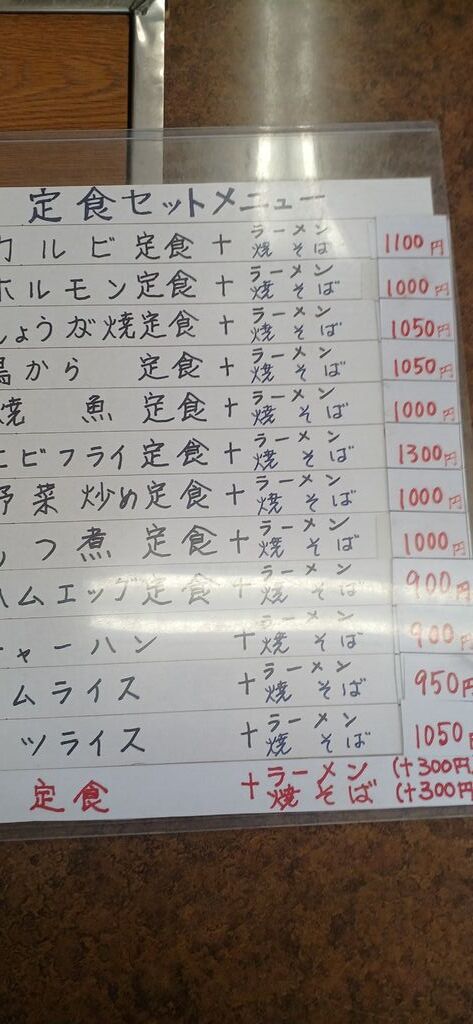 定食セットメニュー
カルビ定食 + ラーメン 焼そば 1100円
ホルモン定食 + ラーメン 焼そば 1000円
しょうが焼定食 + ラーメン 焼そば 1050円
鳥から 定食 + ラーメン 焼そば 1050円
焼 魚 定食 + ラーメン 焼そば 1000円
エビフライ定食 + ラーメン 焼そば 1300円
野菜炒め定食 + ラーメン 焼そば 1000円
もつ煮 定食 + ラーメン 焼そば 1000円
ハムエッグ定食 + ラーメン 焼そば 900円
チャーハン + ラーメン 焼そば 900円
ムライス + ラーメン 焼そば 950円
ツライス + ラーメン 焼そば 1050円
定食 + ラーメン (+300円
焼そば (+300円